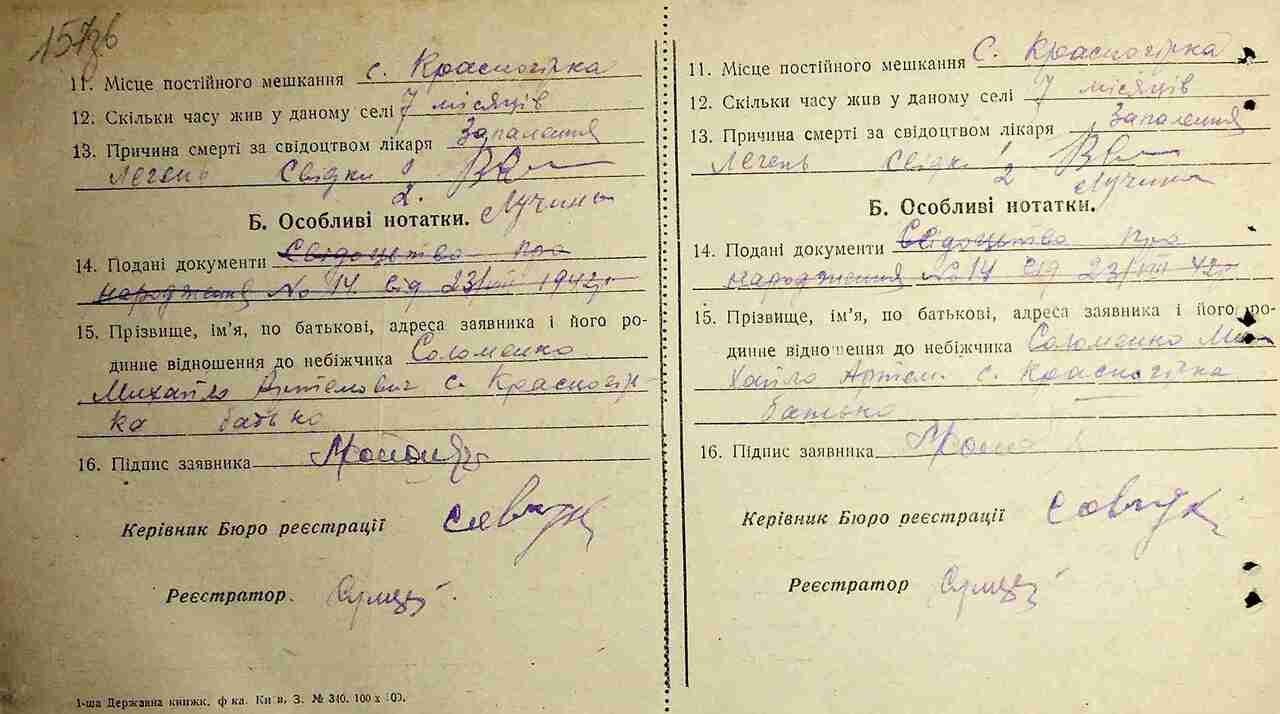 157зв
11. Місце постійного мешкання с. Красногірка
12. Скільки часу жив у даному селі 7 місяців
13. Причина смерті за свідоцтвом лікаря Запалення
легень Свідки 1
2. Лучина
Б. Особливі нотатки.
14. Подані документи Свідоцтво про
народження No 14 від 23/VIII 1942р
15. Прізвище, ім’я, по батькові, адреса заявника і його ро-
динне відношення до небіжчика Соломенко
Михайло Артемович с. Красногір-
ка батько
16. Підпис заявника
Керівник Бюро реєстрації
Реєстратор.
1-ша Державна книжк. ф-ка. Київ, З. № 340. 100 х 100.
11. Місце постійного мешкання С. Красногірка
12. Скільки часу жив у даному селі 7 місяців
13. Причина смерті за свідоцтвом лікаря Запалення
Легень Свідки 1
2 Лучина
Б. Особливі нотатки.
14. Подані документи Свідоцтво про
народження No 14 від 23/VIII 42р
15. Прізвище, ім’я, по батькові, адреса заявника і його ро-
динне відношення до небіжчика Соломенко Ми-
хайло Артем. с. Красногірка
батько
16. Підпис заявника
Керівник Бюро реєстрації
Реєстратор